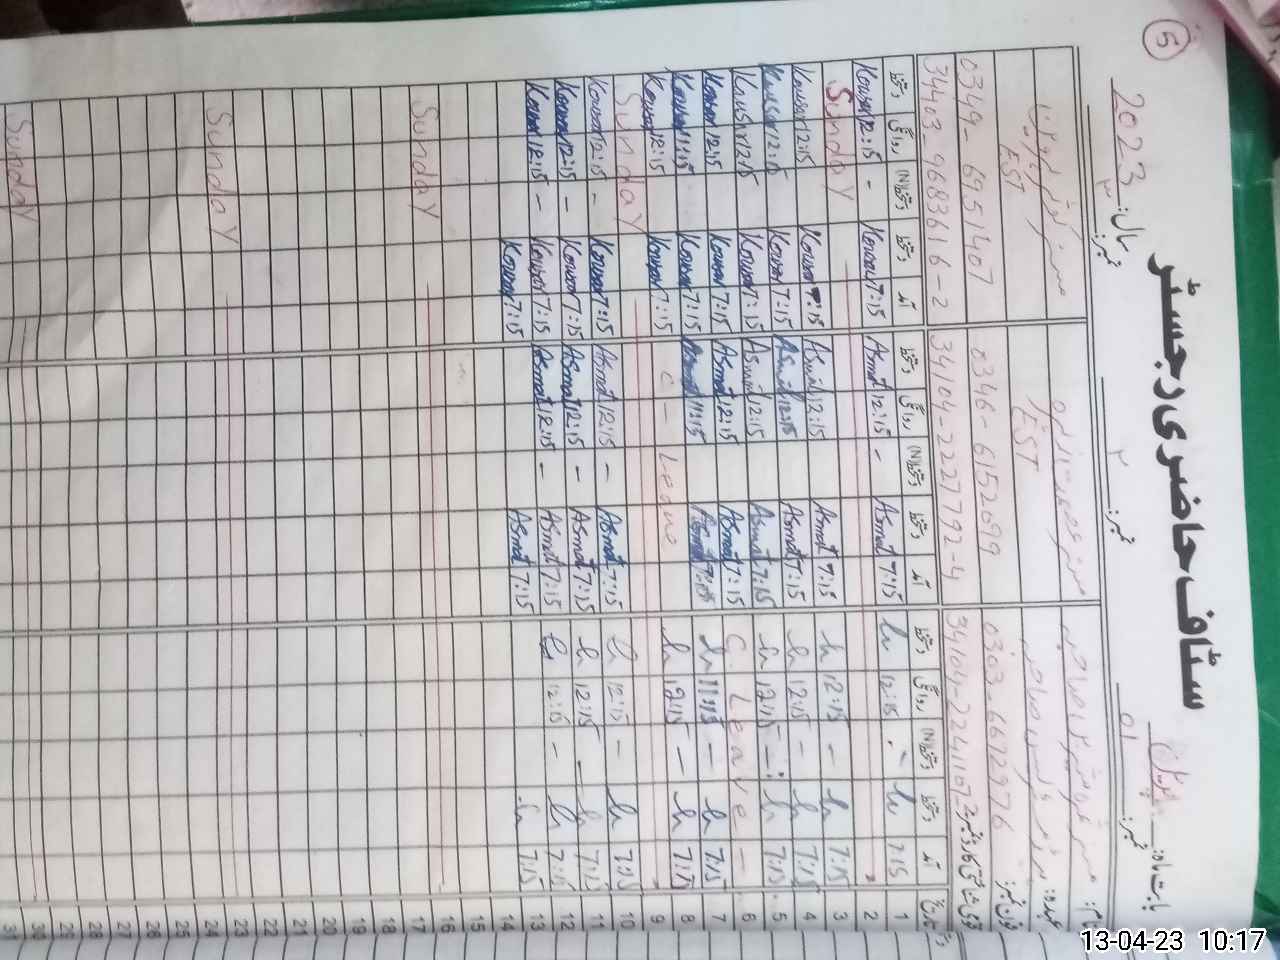 5
سٹاف حاضری رجسٹر
بابت ماہ: اپریل سال: 2023
نمبر: 01 نمبر: ۲ نمبر: ۳
نام:
عہدہ: EST EST
فون نمبر: 0303-6612976 0346-6152699 0349-6951407
شناختی کارڈ نمبر: 34104-2241167-2 34104-2227792-4 34403-9683616-2
تاریخ آمد دستخط دستخط(N) روانگی دستخط آمد دستخط دستخط(N) روانگی دستخط آمد دستخط دستخط(N) روانگی دستخط
1 7:15 12:15 7:15 Asmat - 12:15 Asmat 7:15 Kousar - 12:15 Kousar
2 Sunday
3 7:15 - 12:15 7:15 Asmat 12:15 Asmat 7:15 Kousar 12:15 Kousar
4 7:15 - 12:15 7:15 Asmat 12:15 Asmat 7:15 Kousar 12:15 Kousar
5 7:15 - 12:15 7:15 Asmat 12:15 Asmat 7:15 Kousar 12:15 Kousar
6 C. Leave - 7:15 Asmat 12:15 Asmat 7:15 Kousar 12:15 Kousar
7 7:15 - 11:15 7:15 Asmat 11:15 Asmat 7:15 Kousar 11:15 Kousar
8 7:15 - 12:15 C - Leave 7:15 Kousar 12:15 Kousar
9 Sunday
10 7:15 - 12:15 7:15 Asmat - 12:15 Asmat 7:15 Kousar - 12:15 Kousar
11 7:15 - 12:15 7:15 Asmat - 12:15 Asmat 7:15 Kousar - 12:15 Kousar
12 7:15 - 12:15 7:15 Asmat - 12:15 Asmat 7:15 Kousar - 12:15 Kousar
13 7:15 7:15 Asmat 7:15 Kousar
14
15
16 Sunday
17
18
19
20
21
22
23 Sunday
24
25
26
27
28
29
30 Sunday
31
13-04-23 10:17